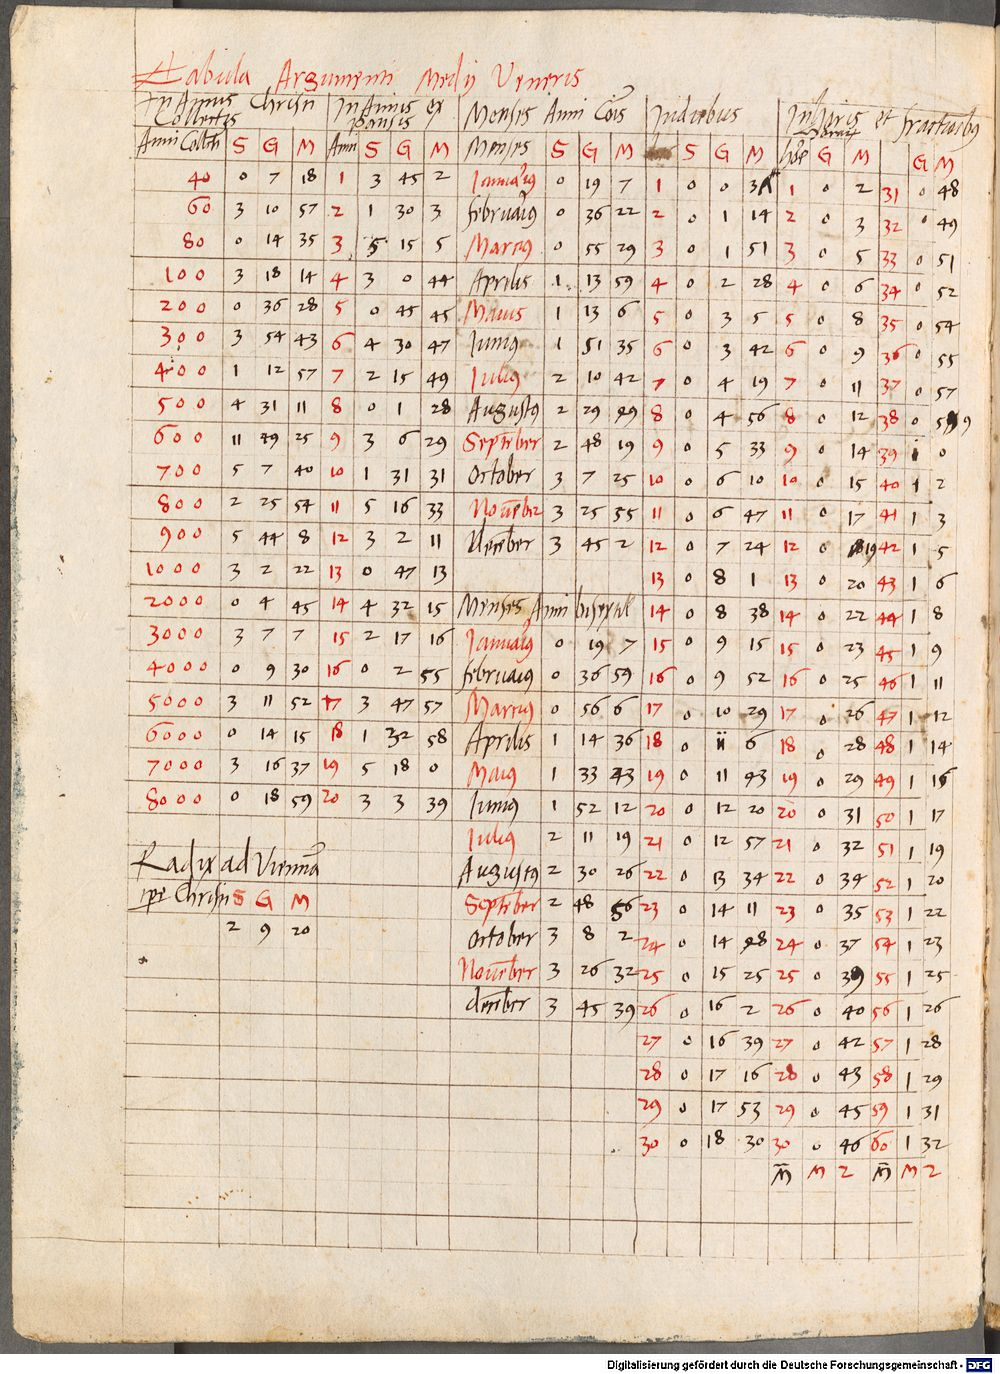 Tabula Argumenti Medij Veneris
In Annis Christi Collectis | In Annis expansis | Menses Anni Cois | In diebus | In horis et fractionibus horarum
Anni Collecti S G M | Anni S G M | Menses S G M | S G M | hore G M | G M
40 0 7 18 | 1 3 45 2 | Januarius 0 19 7 | 1 0 0 37 | 1 0 2 | 31 0 48
60 3 10 57 | 2 1 30 3 | februarius 0 36 22 | 2 0 1 14 | 2 0 3 | 32 0 49
80 0 14 35 | 3 5 15 5 | Marcius 0 55 29 | 3 0 1 51 | 3 0 5 | 33 0 51
100 3 18 14 | 4 3 0 44 | Aprilis 1 13 59 | 4 0 2 28 | 4 0 6 | 34 0 52
200 0 36 28 | 5 0 45 45 | Maius 1 13 6 | 5 0 3 5 | 5 0 8 | 35 0 54
300 3 54 43 | 6 4 30 47 | Junius 1 51 35 | 6 0 3 42 | 6 0 9 | 36 0 55
400 1 12 57 | 7 2 15 49 | Julius 2 10 42 | 7 0 4 19 | 7 0 11 | 37 0 57
500 4 31 11 | 8 0 1 28 | Augustus 2 29 49 | 8 0 4 56 | 8 0 12 | 38 0 59
600 11 49 25 | 9 3 6 29 | September 2 48 19 | 9 0 5 33 | 9 0 14 | 39 1 0
700 5 7 40 | 10 1 31 31 | October 3 7 25 | 10 0 6 10 | 10 0 15 | 40 1 2
800 2 25 54 | 11 5 16 33 | November 3 25 55 | 11 0 6 47 | 11 0 17 | 41 1 3
900 5 44 8 | 12 3 2 11 | December 3 45 2 | 12 0 7 24 | 12 0 19 | 42 1 5
1000 3 2 22 | 13 0 47 13 | 13 0 8 1 | 13 0 20 | 43 1 6
2000 0 4 45 | 14 4 32 15 | Menses Anni bisextil | 14 0 8 38 | 14 0 22 | 44 1 8
3000 3 7 7 | 15 2 17 16 | Januarius 0 19 7 | 15 0 9 15 | 15 0 23 | 45 1 9
4000 0 9 30 | 16 0 2 55 | februarius 0 36 59 | 16 0 9 52 | 16 0 25 | 46 1 11
5000 3 11 52 | 17 3 47 57 | Marcius 0 56 6 | 17 0 10 29 | 17 0 26 | 47 1 12
6000 0 14 15 | 18 1 32 58 | Aprilis 1 14 36 | 18 0 11 6 | 18 0 28 | 48 1 14
7000 3 16 37 | 19 5 18 0 | Maius 1 33 43 | 19 0 11 43 | 19 0 29 | 49 1 15
8000 0 18 59 | 20 3 3 39 | Junius 1 52 12 | 20 0 12 20 | 20 0 31 | 50 1 17
Julius 2 11 19 | 21 0 12 57 | 21 0 32 | 51 1 19
Radix ad Viennam | Augustus 2 30 26 | 22 0 13 34 | 22 0 34 | 52 1 20
tpe Christi S G M | September 2 48 56 | 23 0 14 11 | 23 0 35 | 53 1 22
2 9 20 | October 3 8 2 | 24 0 14 48 | 24 0 37 | 54 1 23
November 3 26 32 | 25 0 15 25 | 25 0 39 | 55 1 25
december 3 45 39 | 26 0 16 2 | 26 0 40 | 56 1 26
27 0 16 39 | 27 0 42 | 57 1 28
28 0 17 16 | 28 0 43 | 58 1 29
29 0 17 53 | 29 0 45 | 59 1 31
30 0 18 30 | 30 0 46 | 60 1 32
M M 2 | M M 2
Digitalisierung gefördert durch die Deutsche Forschungsgemeinschaft - DFG